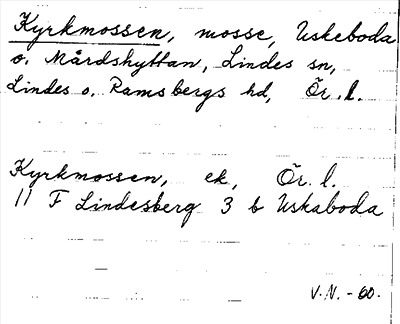 Kyrkmossen, mosse, Uskeboda
o. Mårdshyttan, Lindes sn,
Lindes o. Ramsbergs hd, Ör. l.
Kyrkmossen, ek, Ör. l.
11 F Lindesberg 3 b Uskaboda
V.N. - 60.